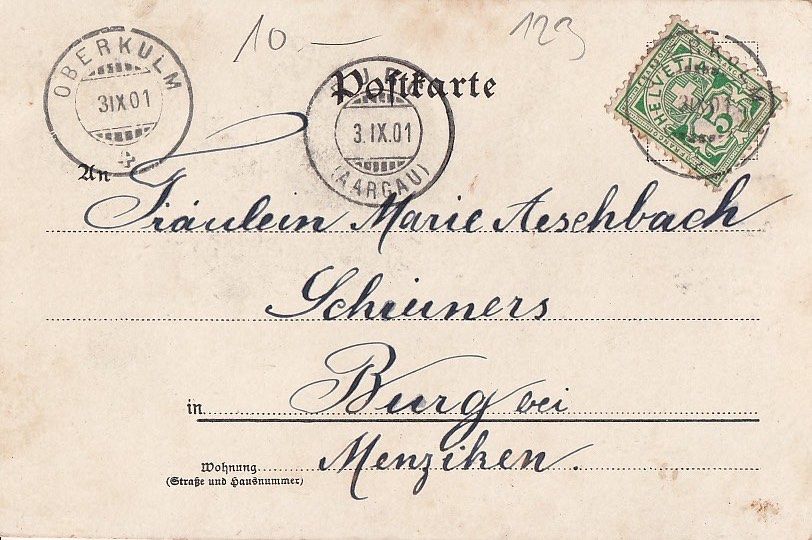 10.–
123
OBERKULM
3 IX 01
Postkarte
3. IX. 01
(AARGAU)
HELVETIA
5
An
Fräulein Marie Aeschbach
Scheuners
in Burg bei
Wohnung Menziken.
(Straße und Hausnummer)